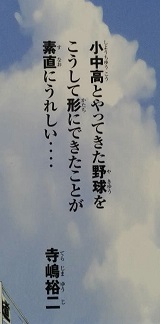 小中高とやってきた野球を
こうして形にできたことが
素直にうれしい‥‥
寺嶋裕二